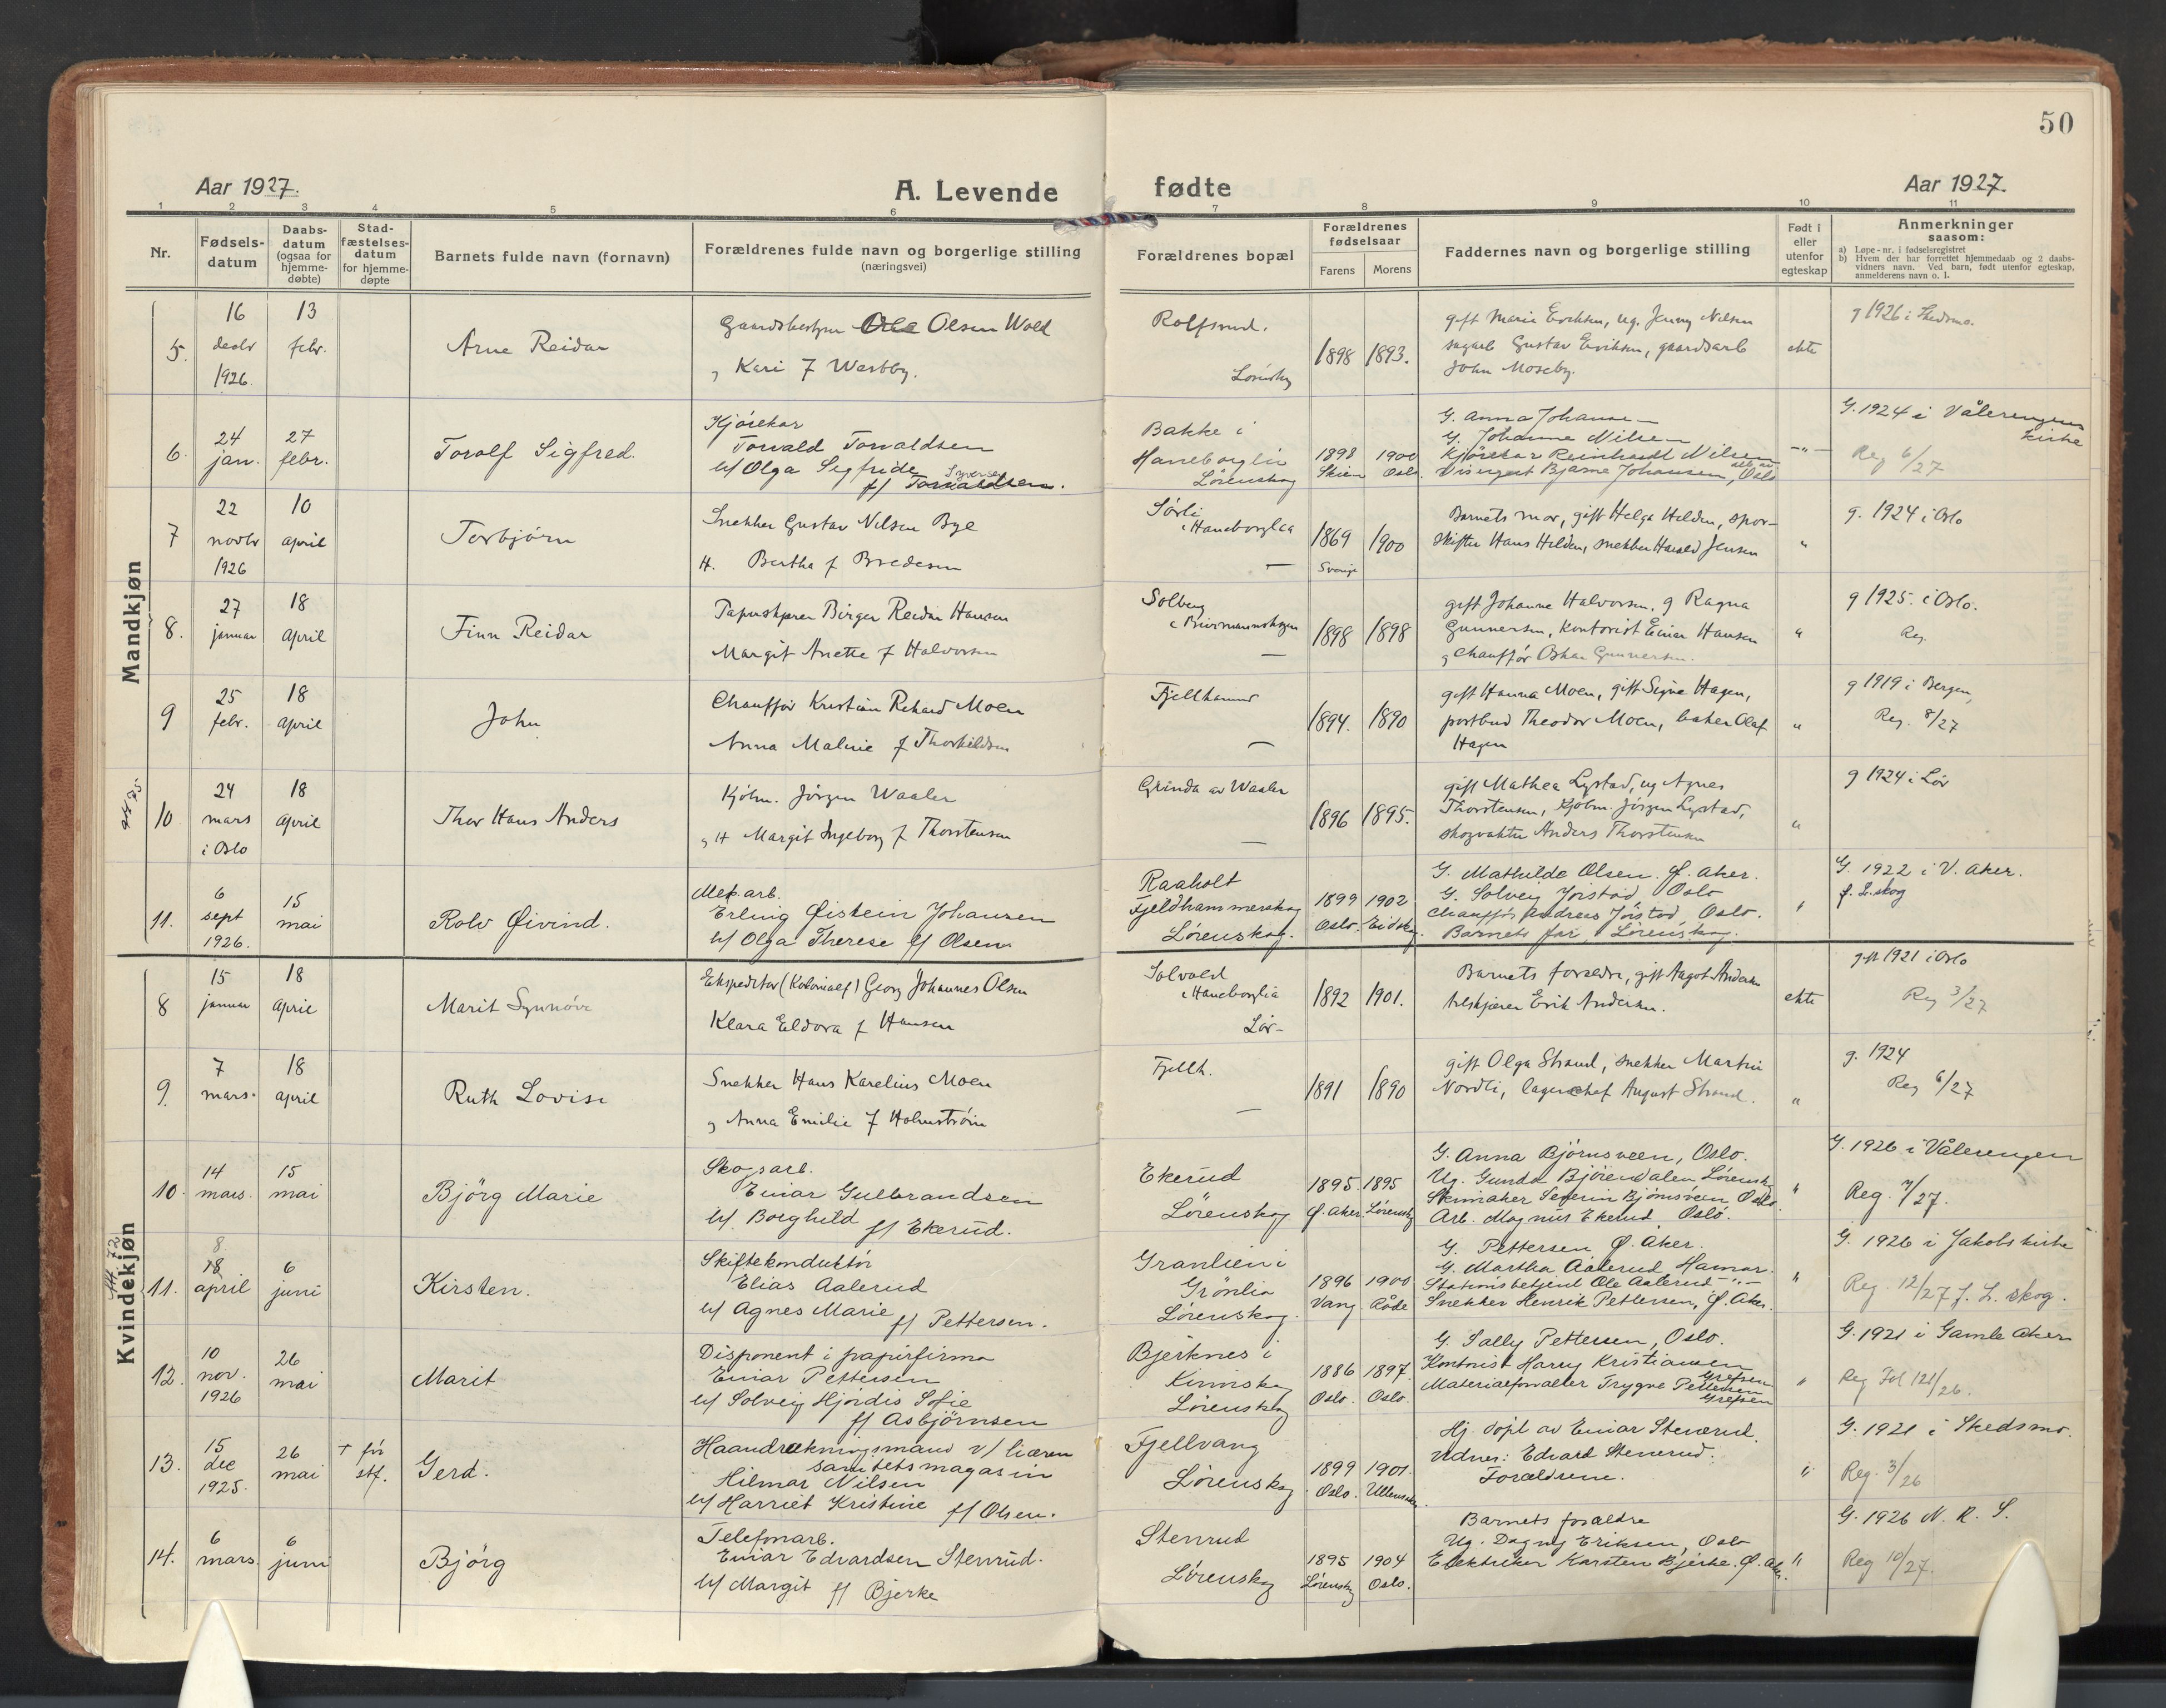 50
Aar 1927.
A. Levende
fødte
Aar 1927.
1 2 3 4 5 6 7 8 9 10 11
Nr.
Fødsels-
datum
Daabs-
datum
(ogsaa for
hjemme-
døbte)
Stad-
fæstelses-
datum
for hjemme-
døpte
Barnets fulde navn (fornavn)
Forældrenes fulde navn og borgerlige stilling
(næringsvei)
Forældrenes bopæl
Forældrenes
fødselsaar
Farens
Morens
Faddernes navn og borgerlige stilling
Født i
eller
utenfor
egteskap
Anmerkninger
saasom:
a) Løpe-nr. i fødselsregistret
b) Hvem der har forrettet hjemmedaab og 2 daabs-
vidners navn. Ved barn, født utenfor egteskap,
anmelderens navn o. l.
Mandkjøn
5.
16
decbr
1926.
13
febr.
Arne Reidar
Gaardsbestyrer Olsen Wold
og Kari f Westby.
Rolfsrud.
Lørenskog
1898 1893.
gift Marie Eriksen, ug. Jenny Nilsen
sagarb Gustav Eriksen, gaardsarb
John Moseby.
ekte
g 1926 i Skedsmo.
6.
24
jan.
27
febr.
Torolf Sigfred.
Kjørekar
Torvald Torvaldsen
u/ Olga Segfride Syversen
f/ Torvaldsen.
Bakke i
Haneborglia
Lørenskog
1898 1900
Skien Oslo.
G. Anna Johanne —
G. Johanne Nilsen
Kjørekar Reinhardt Nilsen
Visergut Bjarne Johansen, alle av Oslo
—"—
G. 1924 i Vålerengen
kirke
Reg 6/27
7
22
novbr
1926
10
april
Torbjørn
Snekker Gustav Nilsen Bye
H. Bertha f Bredesen
Sørli
i Haneborglia
—
1869 1900
Sverige
Barnets mor, gift Helga Helden, spor-
skifter Hans Helden, snekker Harald Jensen
"
g. 1924 i Oslo
8.
27
januar
18
April
Finn Reidar
Papirskjærer Birger Reidar Hansen
Margit Anette f Halvorsen
Solberg
i Biermannskogen
—
1898 1898
gift Johanne Halvorsen, g Ragna
Gunnersen, Kontorist Einar Hansen
og Chauffør Oskar Gunnersen.
"
g 1925. i Oslo.
Reg.
9
25
febr.
18
April
John
Chauffør Kristian Rikard Moen
Anna Malvie f Thorkildsen
Fjellhamar
—
1894. 1890
gift Hanna Moen, gift Signe Hagen,
postbud Theodor Moen, baker Olaf
Hagen
"
g 1919 i Bergen,
Reg. 8/27
10
24
mars
i Oslo
18
April
Thor Hans Anders
Kjøbm. Jørgen Waaler
og H Margit Ingeborg f Thorstensen
Grinda av Waaler
—
1896 1895.
gift Mathea Lystad, ug Agnes
Thorstensen, Kjøbm. Jørgen Lystad,
skogvakter Anders Thorstensen
"
g 1924 i Lør
11.
6
sept
1926.
15
mai
Rolv Øivind.
Mek. arb.
Erling Øistein Johansen
u/ Olga Therese f/ Olsen
Raaholt
Fjeldhammerskog
Lørenskog.
1899 1902
Oslo. Eidskog.
G. Mathilde Olsen. Ø. Aker.
G. Solveig Jørstad, Oslo
Chauffør Andreas Jørstad, Oslo.
Barnets far, Lørenskog.
"
G. 1922 i V. Aker.
f. L.skog
Kvindekjøn
8
15
januar
18
April
Marit Synnøve
Ekspeditør (Kolonialf) Georg Johannes Olsen
Klara Eldora f Hansen
Solvold
i Haneborglia
Lør-
1892 1901.
Barnets foreldre, gift Aagot Andersen
Erik Andersen.
ekte
gift 1921 i Oslo
Reg 3/27
9.
7
mars.
18
April
Ruth Lovise
Snekker Hans Karelius Moen
og Anna Emilie f Holmstrøm
Fjellh.
—
1891 1890
gift Olga Strand, snekker Martin
Nordli, lagerchef August Strand.
"
g. 1924
Reg 6/27
10.
14
mars.
15
mai
Bjørg Marie
Skogsarb.
Einar Gulbrandsen
u/ Borghild f/ Ekerud.
Ekerud
Lørenskog
1895. 1895
Ø. Aker. Lørenskg
G. Anna Bjørnsveen, Oslo.
Ug. Gunda Bjørendalen Lørenskg
Skomaker Severin Bjørnsveen Oslo.
Arb. Magnus Ekerud, Oslo.
"
G. 1926 i Vålerengen
Reg. 7/27.
11.
8
18
april
6
juni
Kirsten.
Skiftekonduktør
Elias Aalerud
u/ Agnes Marie f/ Pettersen.
Granlien i
Grönlia
Lørenskog.
1896 1900
Vang Råde
G. Pettersen, Ø. Aker.
G. Martha Aalerud Hamar.
Stationsbetjent Ole Aalerud —"—
Snekker Henrik Pettersen, Ø. Aker.
"
G. 1926 i Jakobs kirke
Reg. 12/27 f. L. skog.
12.
10
nov.
1926
26
mai
Marit
Disponent i papirfirma
Einar Pettersen
u/ Solveig Hjørdis Sofie
f/ Asbjørnsen
Bjerknes i
Kinnskog
Lørenskog
1886 1897.
Oslo. Oslo.
G. Sally Pettersen, Oslo.
Kontorist Harry Kristiansen
Grefsen
Materialforvalter Trygve Pettersen
Grefsen
"
G. 1921 i Gamle Aker
Reg Fol 121/26.
13.
15
dec
1925.
26
mai
+ før
stf.
Gerd.
Haandrækningsmand v/ hæren
sanitetsmagasin
Hilmar Nilsen
u/ Harriet Kristine f/ Olsen.
Fjellvang
Lørenskog
1899 1901.
Oslo. Ullensaker.
Hj. døpt av Einar Stenerud.
Vidner: Edvard Stenerud.
Forældrene.
"
G. 1921 i Skedsmo.
Reg. 3/26
14.
6
mars.
6
juni
Bjørg
Telefonarb.
Einar Edvardsen Stenrud.
u/ Margit f/ Bjerke
Stenrud
Lørenskog
1895 1904
Lørenskg Oslo.
Barnets forældre
Ug. Dagny Eriksen, Oslo
Elektriker Karsten Bjerke. Ø. Aker.
"
G. 1926 N. R. S.
Reg 10/27.